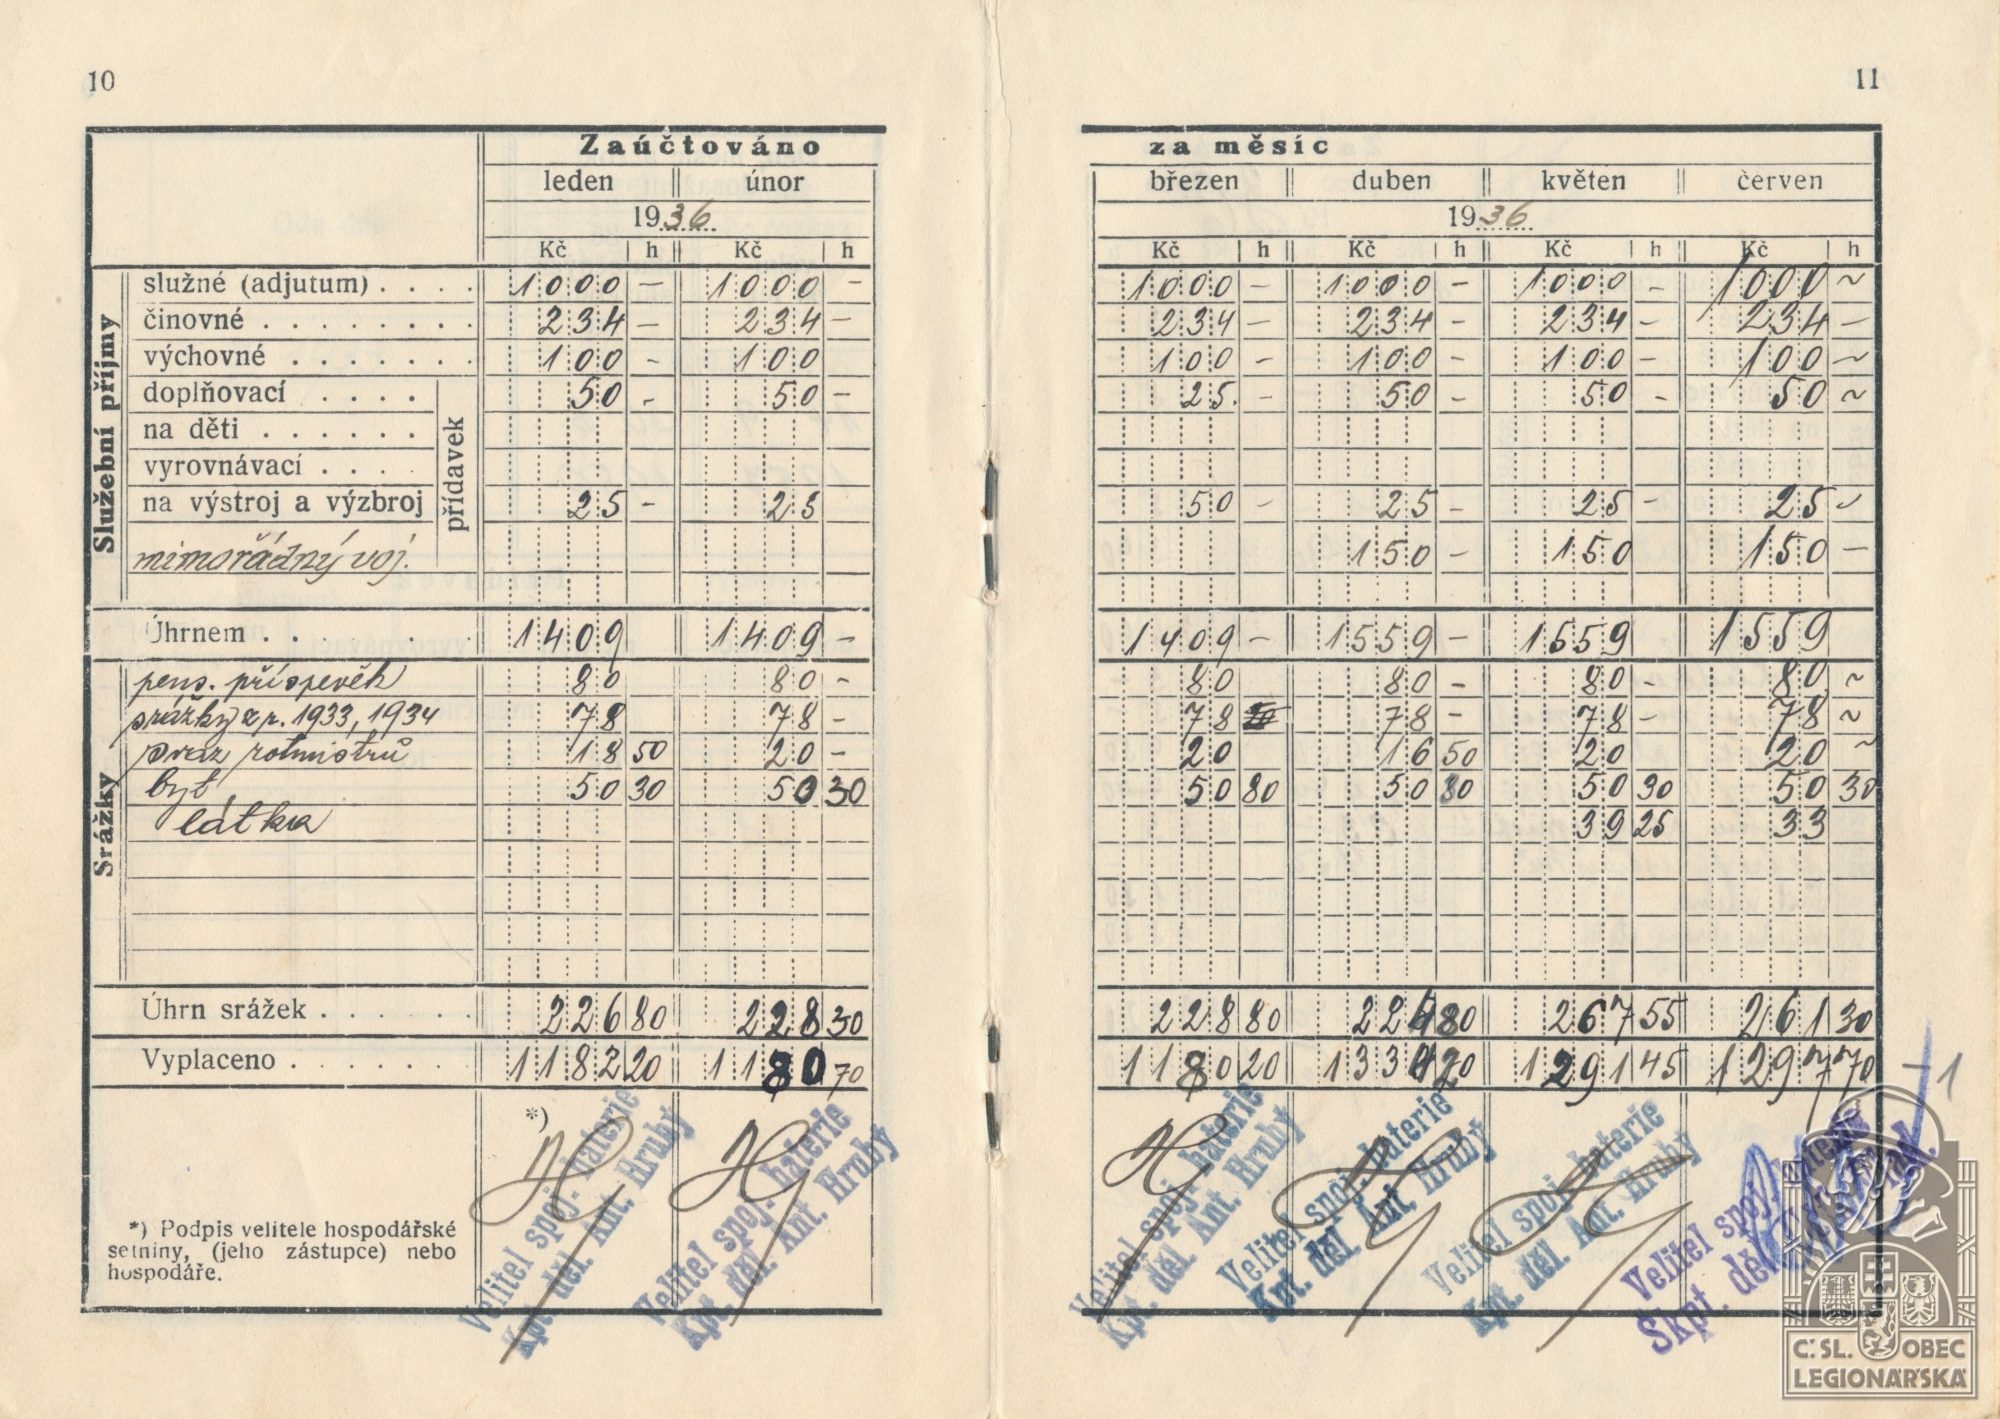 10
11
Zaúčtováno
za měsíc
leden únor
březen duben květen červen
1936
1936
Kč h Kč h
Kč h Kč h Kč h Kč h
Služební příjmy
služné (adjutum) . . . . 1000 – 1000 – 1000 – 1000 – 1000 – 1000 ~
činovné . . . . . . . . 234 – 234 – 234 – 234 – 234 – 234 –
výchovné . . . . . . . 100 – 100 100 – 100 – 100 – 100 ~
přídavek
doplňovací . . . . 50 – 50 – 25. – 50 – 50 – 50 ~
na děti . . . . . .
vyrovnávací . . . .
na výstroj a výzbroj 25 – 25 50 – 25 – 25 – 25 ~
mimořádný voj. 150 – 150 150 –
Úhrnem . . . . . . 1409 1409 – 1409 – 1559 – 1559 1559
Srážky
pens. příspěvěk 80 80 – 80 80 – 80 – 80 ~
srážky z r. 1933, 1934 78 78 – 78 78 – 78 – 78 ~
svaz rotmistrů 18 50 20 – 20 16 50 20 20 ~
byt 50 30 50 30 50 80 50 80 50 30 50 30
látka 39 25 33
Úhrn srážek . . . . . . 226 80 228 30 228 80 224 80 267 55 261 30
Vyplaceno . . . . . . . 1182 20 1180 70 1180 20 1334 20 1291 45 1297 70
–1
*)
Velitel spoj. baterie
Kpt. děl. Ant. Hrubý
Velitel spoj. baterie
Kpt. děl. Ant. Hrubý
Velitel spoj. baterie
Kpt. děl. Ant. Hrubý
Velitel spoj. baterie
Kpt. děl. Ant. Hrubý
Velitel spoj. baterie
Kpt. děl. Ant. Hrubý
Velitel spoj. baterie
Škpt. děl.
*) Podpis velitele hospodářské
setniny, (jeho zástupce) nebo
hospodáře.
Č. SL. OBEC
LEGIONÁŘSKÁ